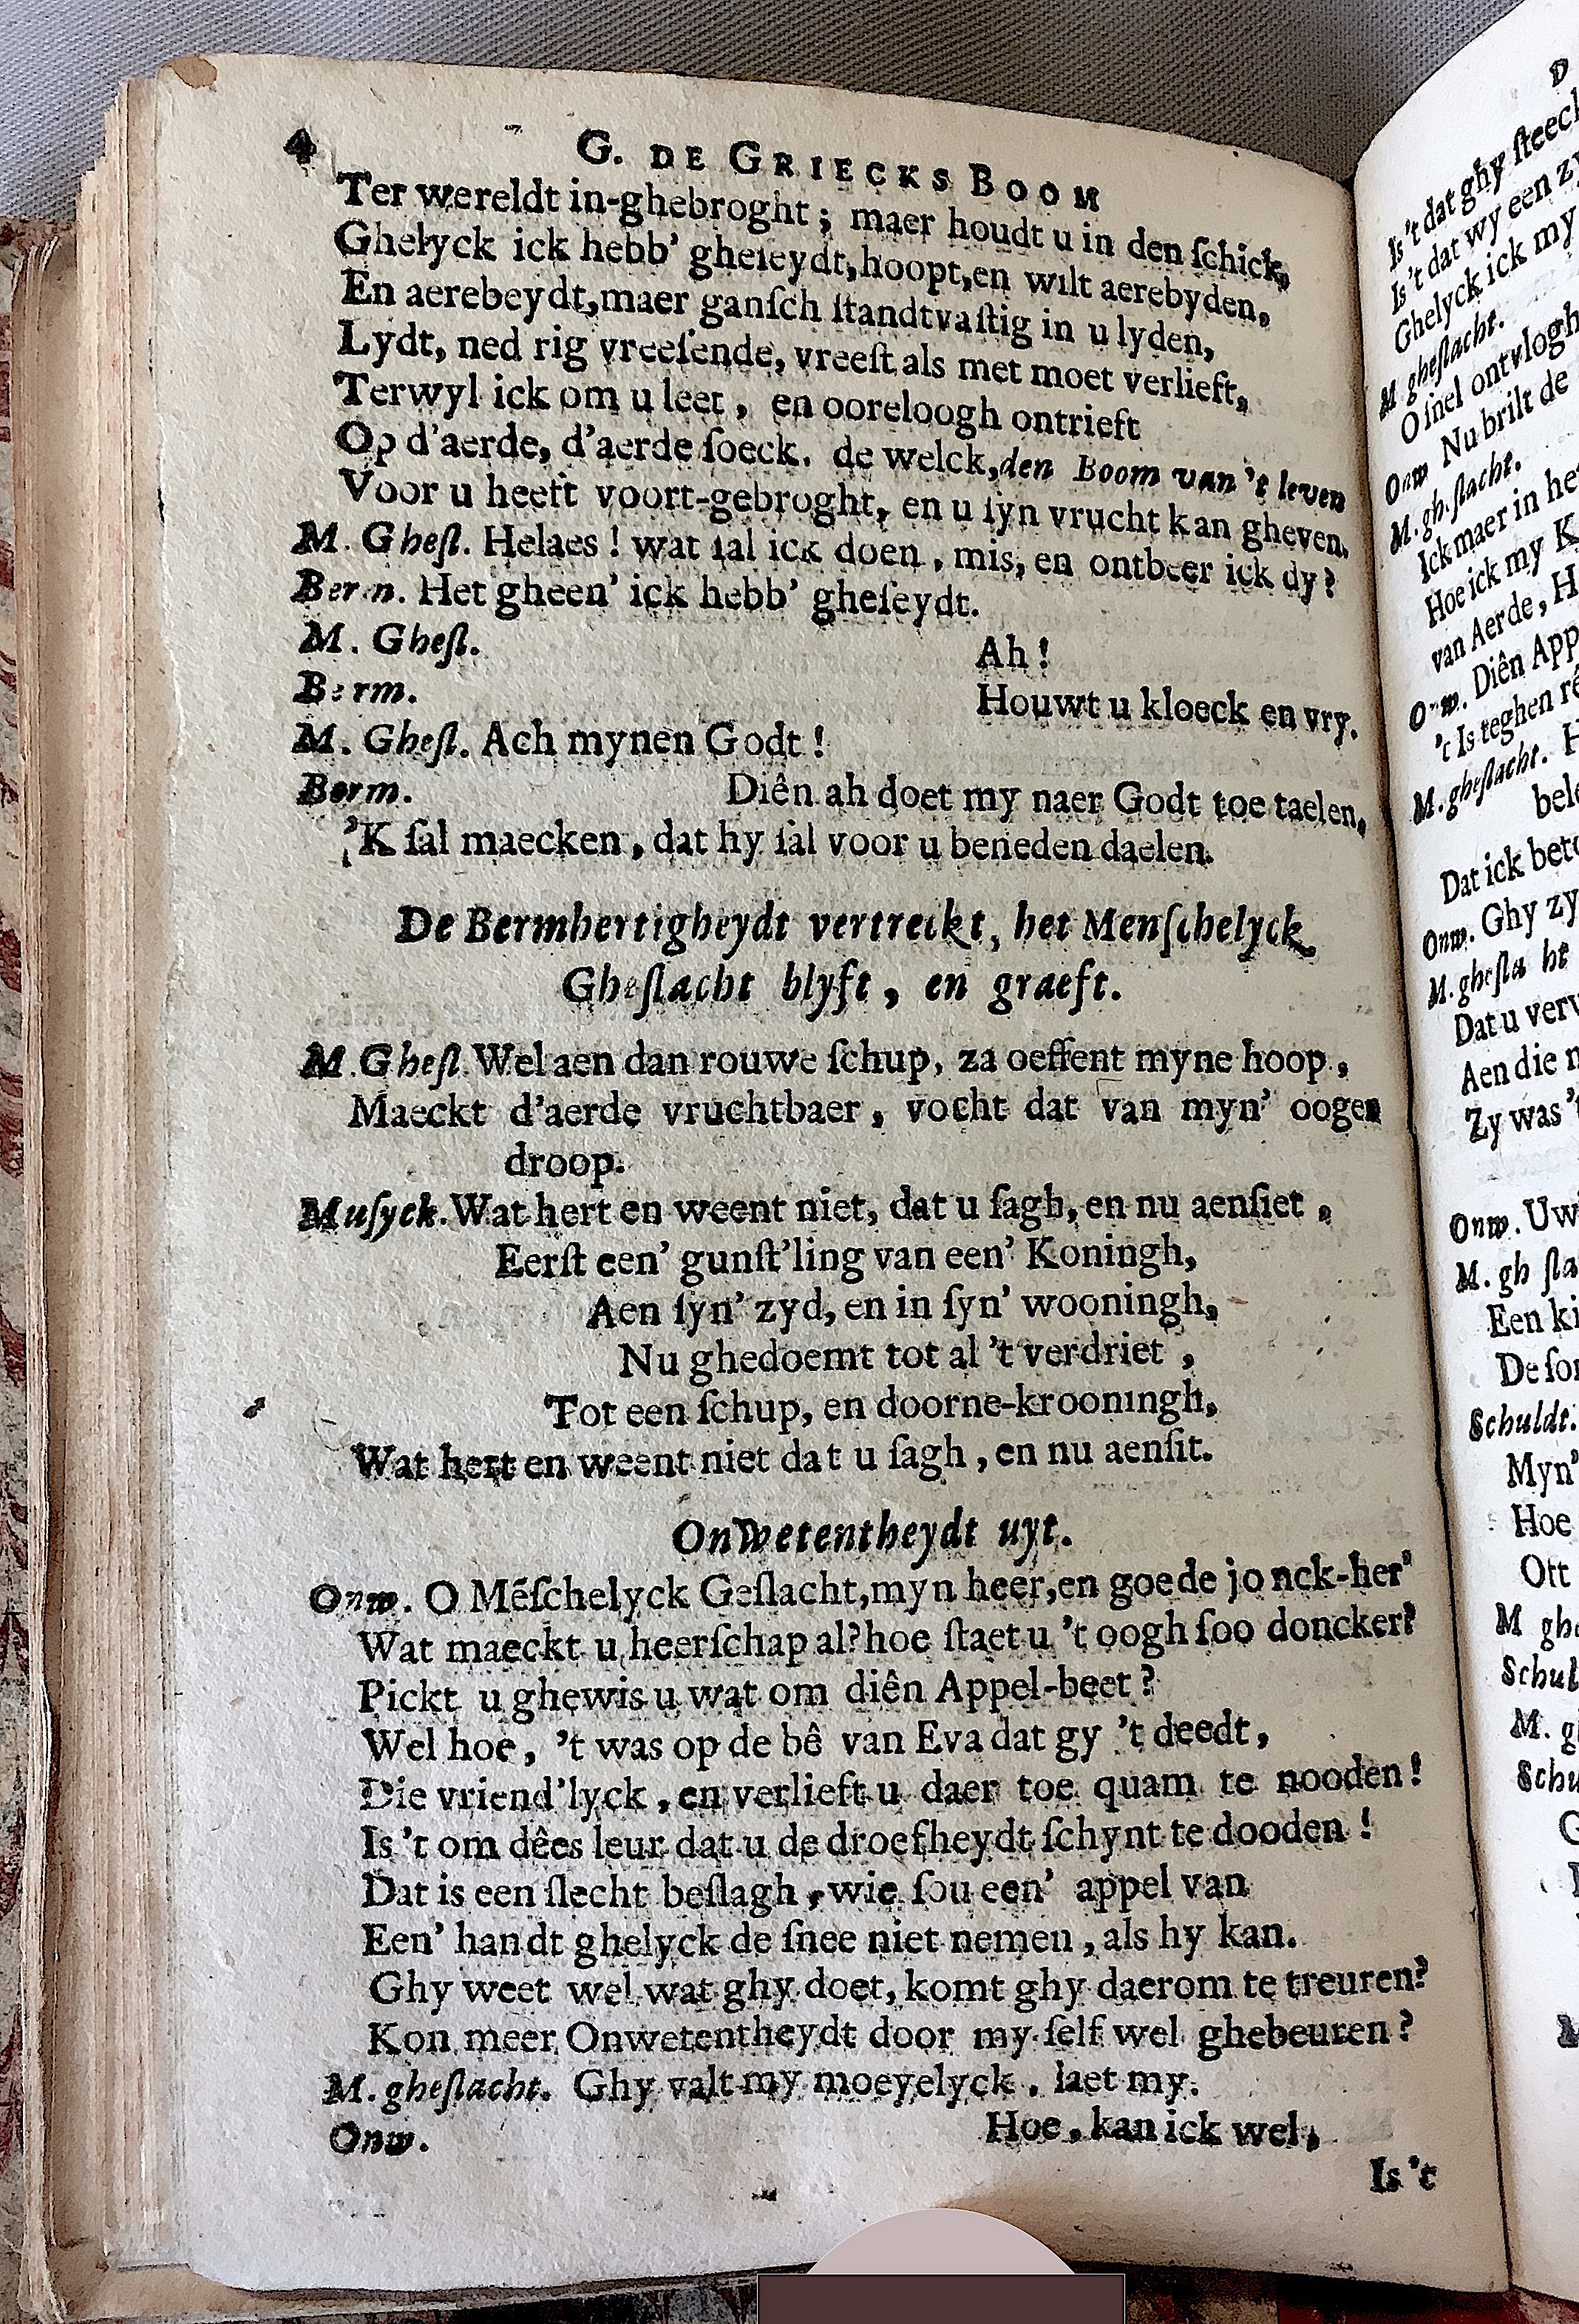 4 G. DE GRIECKS BOOM
Ter wereldt in-ghebroght; maer houdt u in den ſchick,
Ghelyck ick hebb' gheſeydt, hoopt, en wilt aerebyden,
En aerebeydt, maer ganſch ſtandtvaſtig in u lyden,
Lydt, ned rig vreeſende, vreeſt als met moet verlieft,
Terwyl ick om u leet, en ooreloogh ontrieft
Op d'aerde, d'aerde ſoeck. de welck, den Boom van 't leven
Voor u heeft voort-gebroght, en u ſyn vrucht kan gheven.
M. Gheſl. Helaes! wat ſal ick doen, mis, en ontbeer ick dy?
Berm. Het gheen' ick hebb' gheſeydt.
M. Gheſl. Ah!
Berm. Houwt u kloeck en vry.
M. Gheſl. Ach mynen Godt!
Berm. Diên ah doet my naer Godt toe taelen,
'K ſal maecken, dat hy ſal voor u beneden daelen.
De Bermhertigheydt vertreckt, het Menſchelyck
Gheſlacht blyft, en graeft.
M. Gheſl. Wel aen dan rouwe ſchup, za oeffent myne hoop,
Maeckt d'aerde vruchtbaer, vocht dat van myn' oogen
droop.
Muſyck. Wat hert en weent niet, dat u ſagh, en nu aenſiet,
Eerſt een' gunſt'ling van een' Koningh,
Aen ſyn' zyd, en in ſyn' wooningh,
Nu ghedoemt tot al 't verdriet,
Tot een ſchup, en doorne-krooningh,
Wat hert en weent niet dat u ſagh, en nu aenſit.
Onwetentheydt uyt.
Onw. O Mēſchelyck Geſlacht, myn heer, en goede jonck-her'
Wat maeckt u heerſchap al? hoe ſtaet u 't oogh ſoo doncker?
Pickt u ghewis u wat om diên Appel-beet?
Wel hoe, 't was op de bê van Eva dat gy 't deedt,
Die vriend'lyck, en verlieft u daer toe quam te nooden!
Is 't om dêes leur dat u de droefheydt ſchynt te dooden!
Dat is een ſlecht beſlagh, wie ſou een' appel van
Een' handt ghelyck de ſnee niet nemen, als hy kan.
Ghy weet wel wat ghy doet, komt ghy daerom te treuren?
Kon meer Onwetentheydt door my ſelf wel ghebeuren?
M. gheſlacht. Ghy valt my moeyelyck, laet my.
Onw. Hoe, kan ick wel,
Is 't
D
Is 't dat ghy ſteeck
Is 't dat wy een zy
Ghelyck ick my
M gheſlacht.
O ſnel ontvlogh
Onw Nu brilt de
M. gh. ſlacht.
Ick maer in het
Hoe ick my K
van Aerde, H
Onw. Diên App
't Is teghen
M. gheſlacht. H
bele
Dat ick beto
Onw. Ghy zy
M. gheſla ht
Dat u verv
Aen die
Zy was 't
Onw. Uw
M. gh ſla
Een ki
De ſon
Schuldt.
Myn'
Hoe
Ott
M ghe
Schul
M. g
Schu